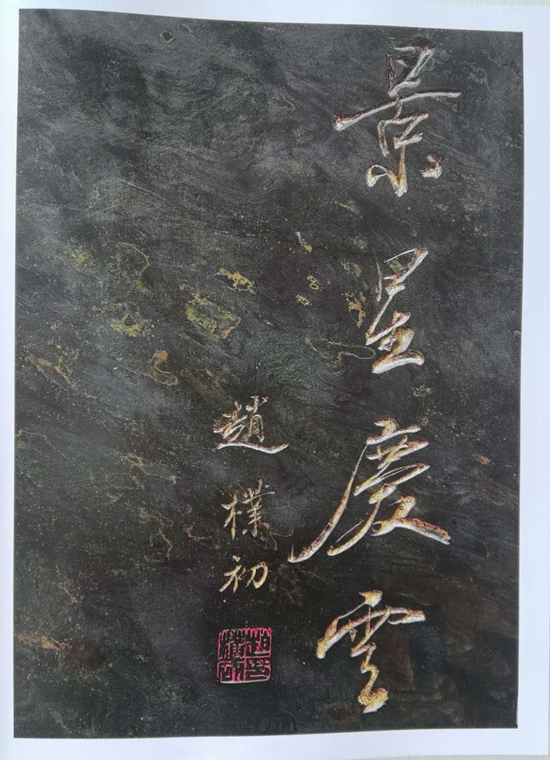 景星慶雲
趙樸初